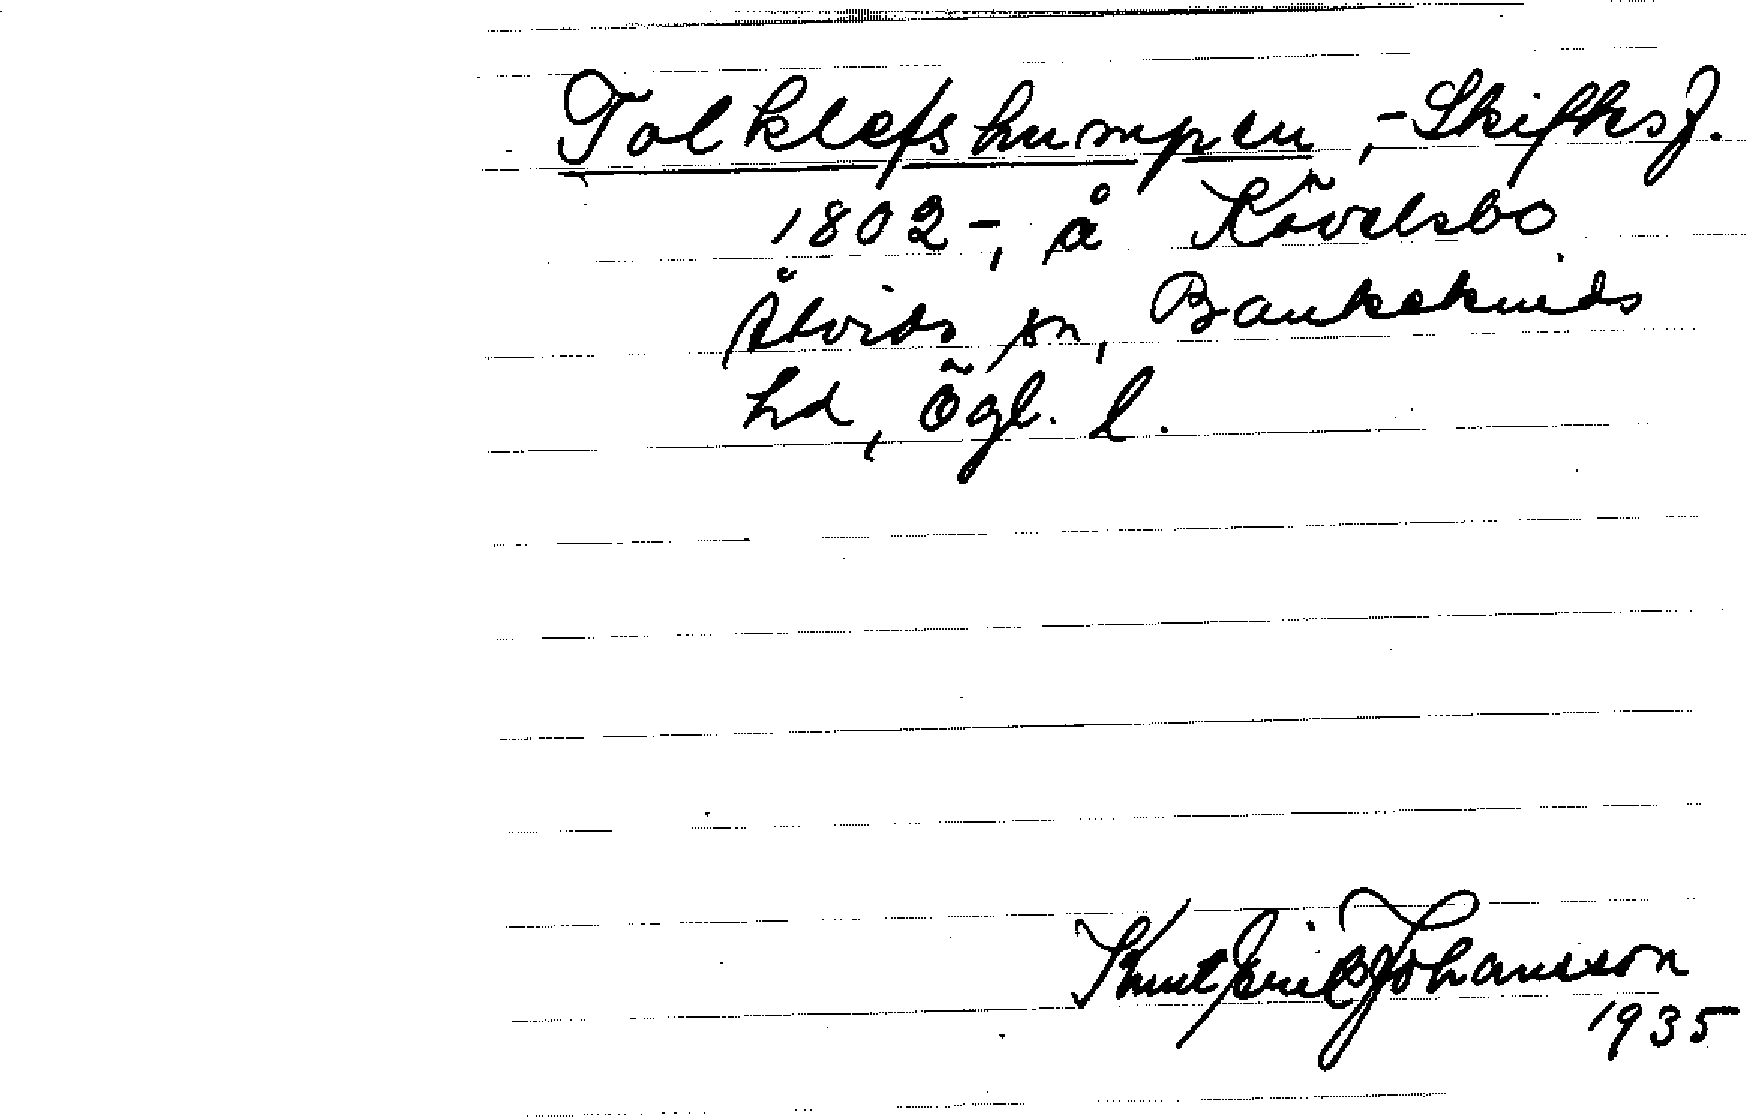 Tolklefshumpen, - Skifksf.
1802 -, å Kövelsbo
Åtvids sn, Bankekinds
hd, Ögl. l.
Knut Erik Johansson
1935